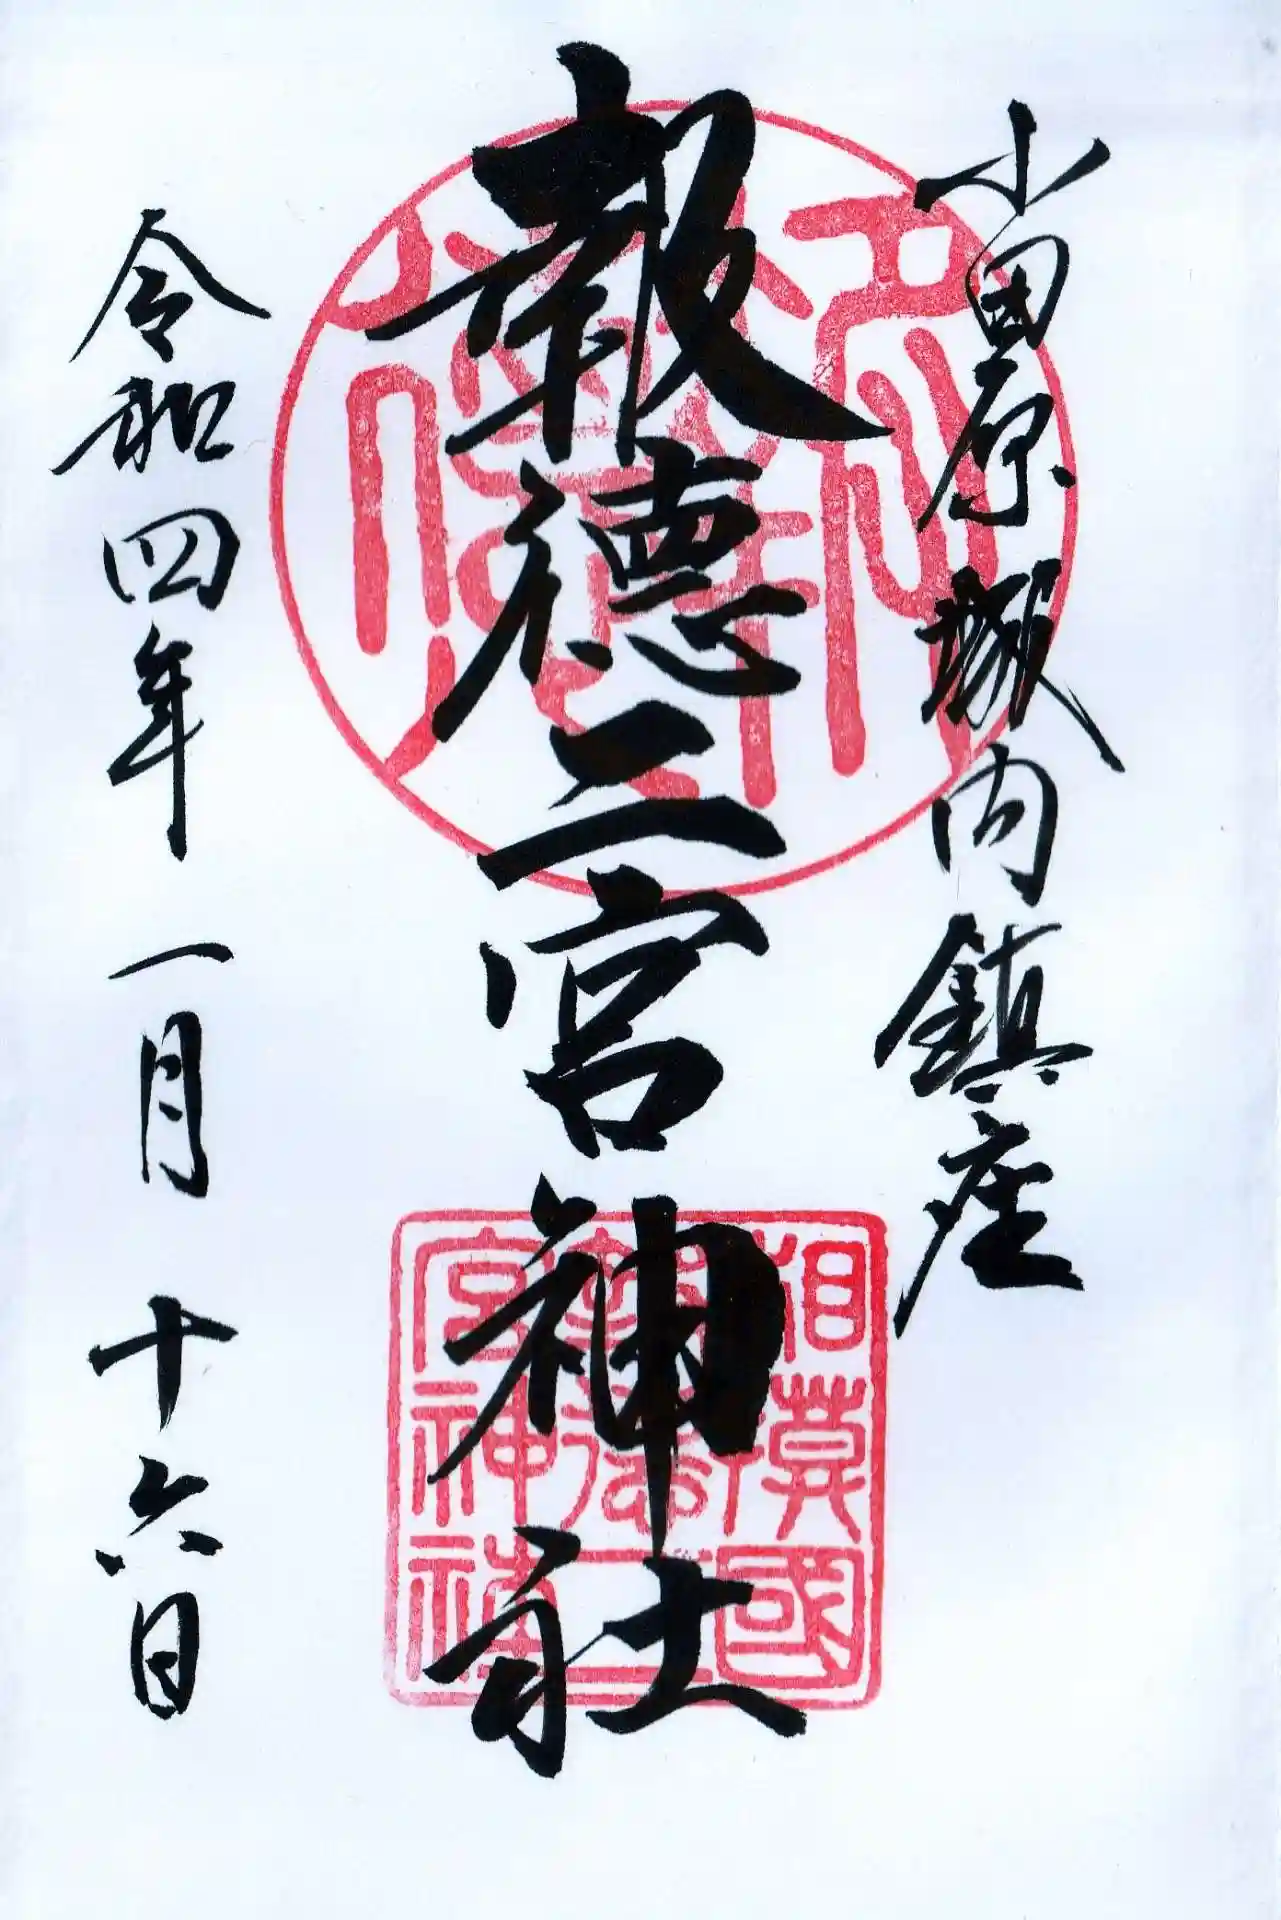 小田原城内鎮座
報徳二宮神社
令和四年一月十六日
相模國
報徳二
宮神社